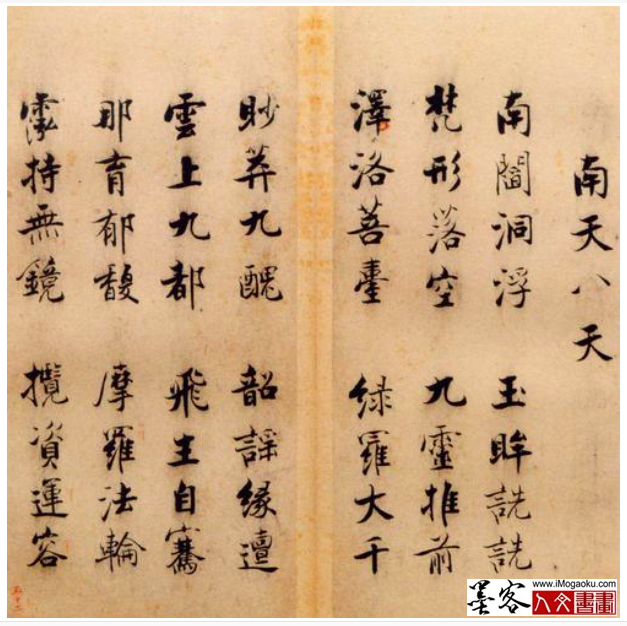 南天八天
南閻洞浮 玉眸詵詵
梵形落空 九靈推前
澤洛菩臺 綠羅大千
眇莽九醜 韶謠緣邅
雲上九都 飛生自騫
那育郁馥 摩羅法輪
霐持無鏡 攬資運容
墨客
www.iMogaoku.com
人文書畫